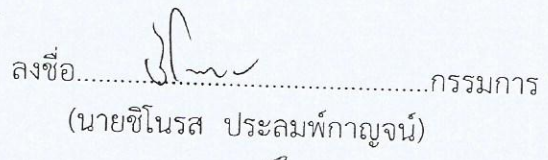 ลงชื่อ..............................................กรรมการ
(นายชิโนรส ประลมพ์กาญจน์)